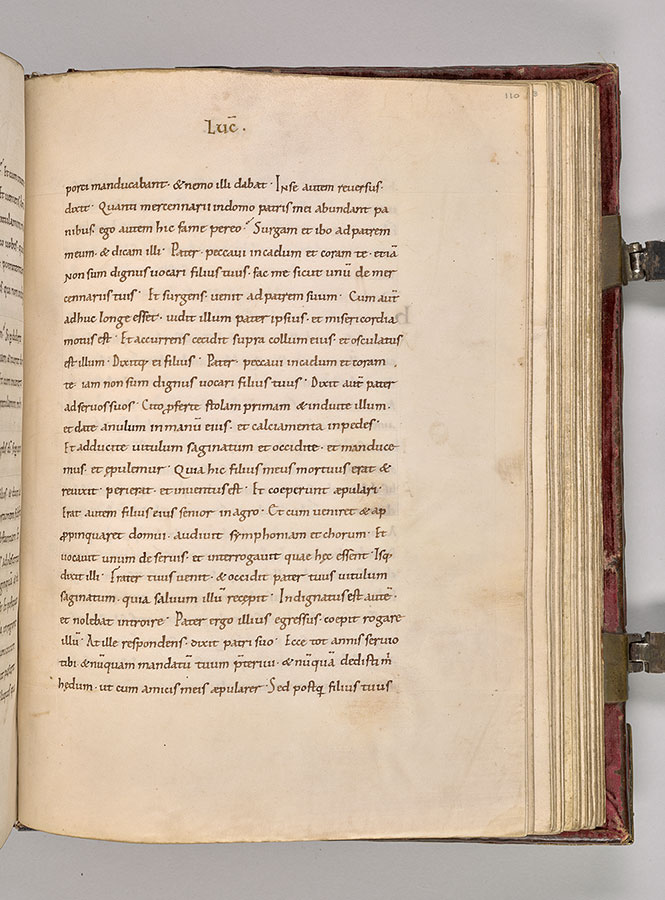 110
Luc̄.
porci manducabant· & nemo illi dabat· Inse autem reversus·
dixit· Quanti mercennarii indomo patris mei abundant pa
nibus· ego autem hic fame pereo· Surgam et ibo ad patrem
meum· & dicam illi· Pater· peccavi incaelum et coram te· et iā
non sum dignus vocari filius tuus· fac me sicut unū de mer
cennariis tuis· Et surgens· venit ad patrem suum· Cum aut̄
adhuc longe esset· vidit illum pater ipsius· et misericordia
motus est· Et accurrens cecidit supra collum eius· et osculatus
est illum· Dixitq; ei filius· Pater· peccavi incaelum et coram
te· iam non sum dignus vocari filius tuus· Dixit aut̄ pater
ad servos suos· Cito p̱ferte stolam primam & induite illum·
et date anulum in manū eius· et calciamenta in pedes·
Et adducite vitulum saginatum et occidite· et manduce
mus· et epulemur· Quia hic filius meus mortuus erat &
revixit· perierat· et inventus est· Et coeperunt æpulari·
Erat autem filius eius senior in agro· Et cum veniret & ap
p̱pinquaret domui· audivit symphoniam et chorum· Et
vocavit unum de servis· et interrogavit quae hęc essent· Isq;
dixit illi· Frater tuus venit· & occidit pater tuus vitulum
saginatum· quia salvum illū recepit· Indignatus est autē·
et nolebat introire· Pater ergo illius egressus· coepit rogare
illū· At ille respondens· dixit patri suo· Ecce tot annis servio
tibi· & nūquam mandatū tuum p̄terivi· & nūquā dedisti m̄
hędum· ut cum amicis meis æpularer· Sed postq̄ filius tuus